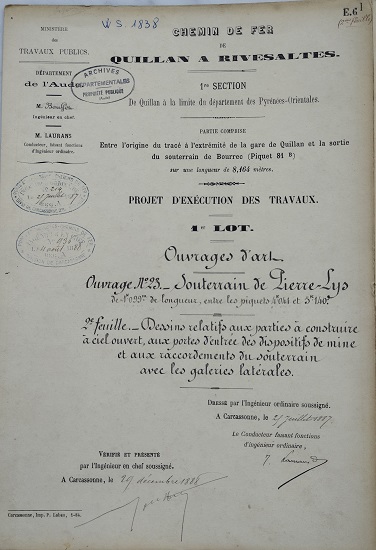 WS. 1838
E.6
MINISTÈRE
des
TRAVAUX PUBLICS.
DÉPARTEMENT
de l'Aude
M. Bouffet
Ingénieur en chef.
M. LAURANS
Conducteur, faisant fonctions
d'ingénieur ordinaire.
CHEMIN DE FER
DE
QUILLAN A RIVESALTES.
ARCHIVES
DÉPARTEMENTALES
PROPRIÉTÉ PUBLIQUE
(Aude)
1re SECTION
De Quillan à la limite du département des Pyrénées-Orientales.
PARTIE COMPRISE
Entre l'origine du tracé à l'extrémité de la gare de Quillan et la sortie
du souterrain de Bourrec (Piquet 81 B)
sur une longueur de 8,164 mètres.
PROJET D'EXÉCUTION DES TRAVAUX.
1er LOT.
Ouvrages d'art.
Ouvrage N° 23._ Souterrain de Pierre-Lys
de longueur, entre les piquets
2e feuille._ Dessins relatifs aux parties à construire
à ciel ouvert, aux portes d'entrée des dispositifs de mine
et aux raccordements du souterrain
avec les galeries latérales.
DRESSÉ par l'Ingénieur ordinaire soussigné.
A Carcassonne, le 25 juillet 1887.
Le Conducteur faisant fonctions
d'ingénieur ordinaire,
VÉRIFIÉ ET PRÉSENTÉ
par l'Ingénieur en chef soussigné.
A Carcassonne, le 29 décembre 1888
Carcassonne, Imp. P. Labau, 1-84.